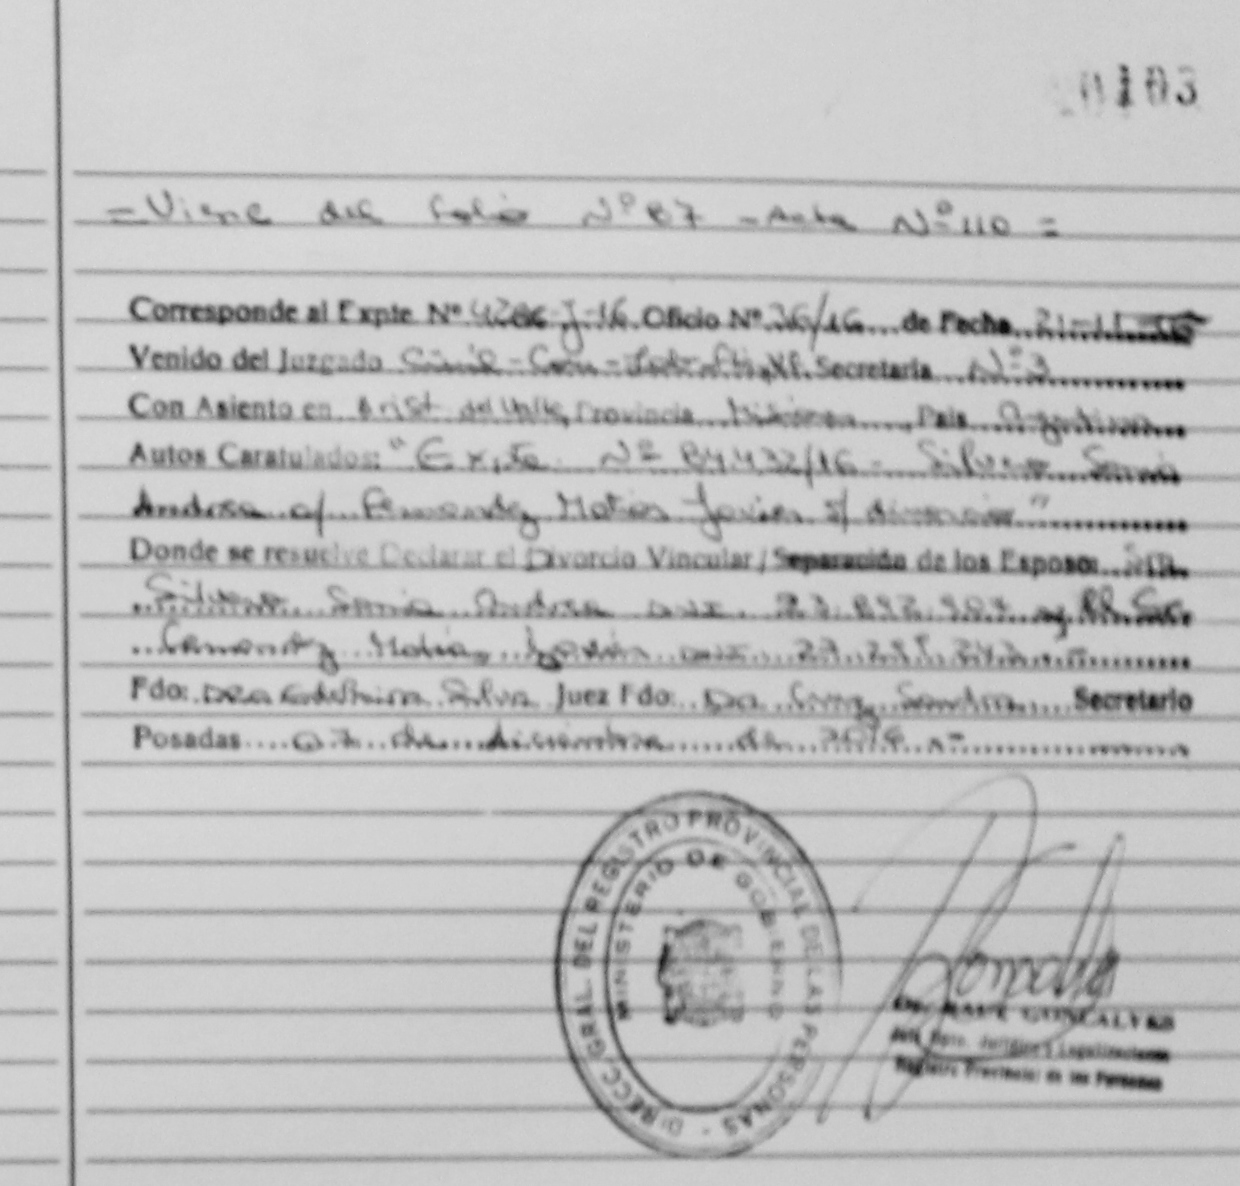 0103
= Viene del folio Nº 87 - Acta Nº 110 =
Corresponde al Expte Nº 4286-J-16 Oficio Nº 36/16 de Fecha 21-11-16
Venido del Juzgado Civil - Com - Secretaria Nº 3
Con Asiento en Arist. del Valle, Provincia Misiones, Pais Argentina
Autos Caratulados: "Expte. Nº 84432/16 - Silvero Sonia
Andrea c/ Fernandez Matias Javier s/ divorcio"
Donde se resuelve Declarar el Divorcio Vincular / Separación de los Esposos Sra.
Silvero Sonia Andrea DNI.
Fernandez Matias Javier DNI
Fdo: Dra Silva Juez Fdo: Dra Sandra Secretario
Posadas 07 de diciembre de
DIRECC/GRAL. DEL REGISTRO PROVINCIAL DE LAS PERSONAS -
MINISTERIO DE GOBIERNO
GONCALVES
Jefe Dpto. Jurídico y Legalizaciones
Registro Provincial de las Personas